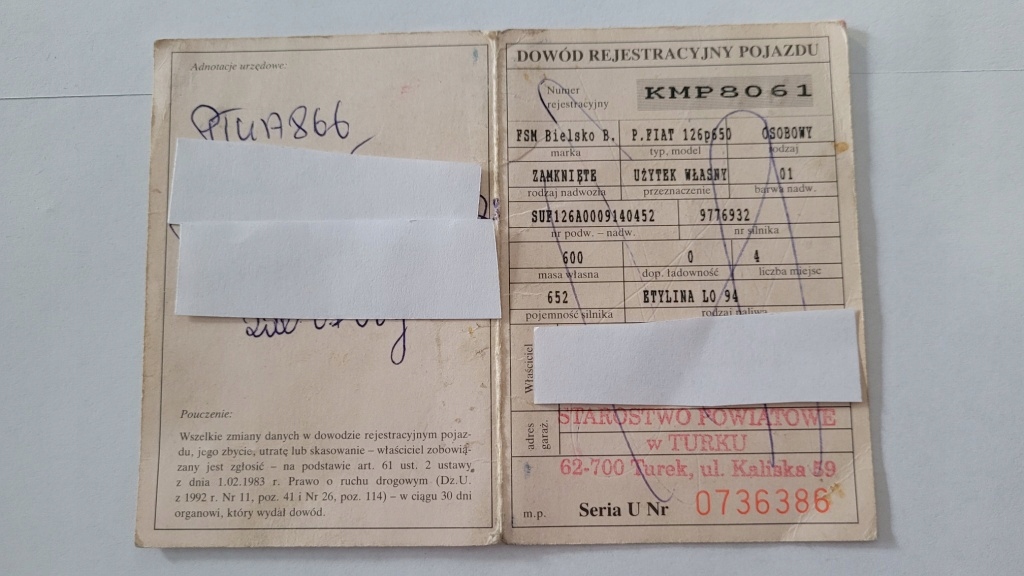 Adnotacje urzędowe:
PTUA866
Pouczenie:
Wszelkie zmiany danych w dowodzie rejestracyjnym pojaz-
du, jego zbycie, utratę lub skasowanie – właściciel zobowią-
zany jest zgłosić – na podstawie art. 61 ust. 2 ustawy
z dnia 1.02.1983 r. Prawo o ruchu drogowym (Dz.U.
z 1992 r. Nr 11, poz. 41 i Nr 26, poz. 114) – w ciągu 30 dni
organowi, który wydał dowód.
DOWÓD REJESTRACYJNY POJAZDU
Numer
rejestracyjny
KMP8061
FSM Bielsko B. P.FIAT 126p650 OSOBOWY
marka typ, model rodzaj
ZAMKNIĘTE UŻYTEK WŁASNY 01
rodzaj nadwozia przeznaczenie barwa nadw.
SUF126A0009140452 9776932
nr podw. – nadw. nr silnika
600 0 4
masa własna dop. ładowność liczba miejsc
652 ETYLINA LO 94
pojemność silnika rodzaj paliwa
Właściciel
adres
garaż.
STAROSTWO POWIATOWE
w TURKU
62-700 Turek, ul. Kaliska 59
m.p. Seria U Nr 0736386